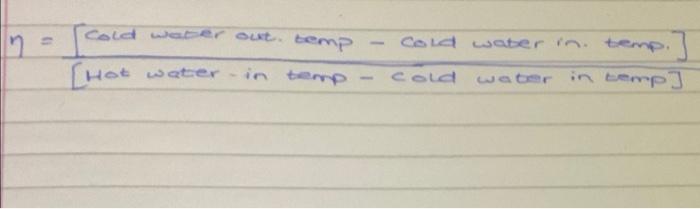 η = [Cold water out. temp - Cold water in. temp.]
[Hot water - in temp - cold water in temp]